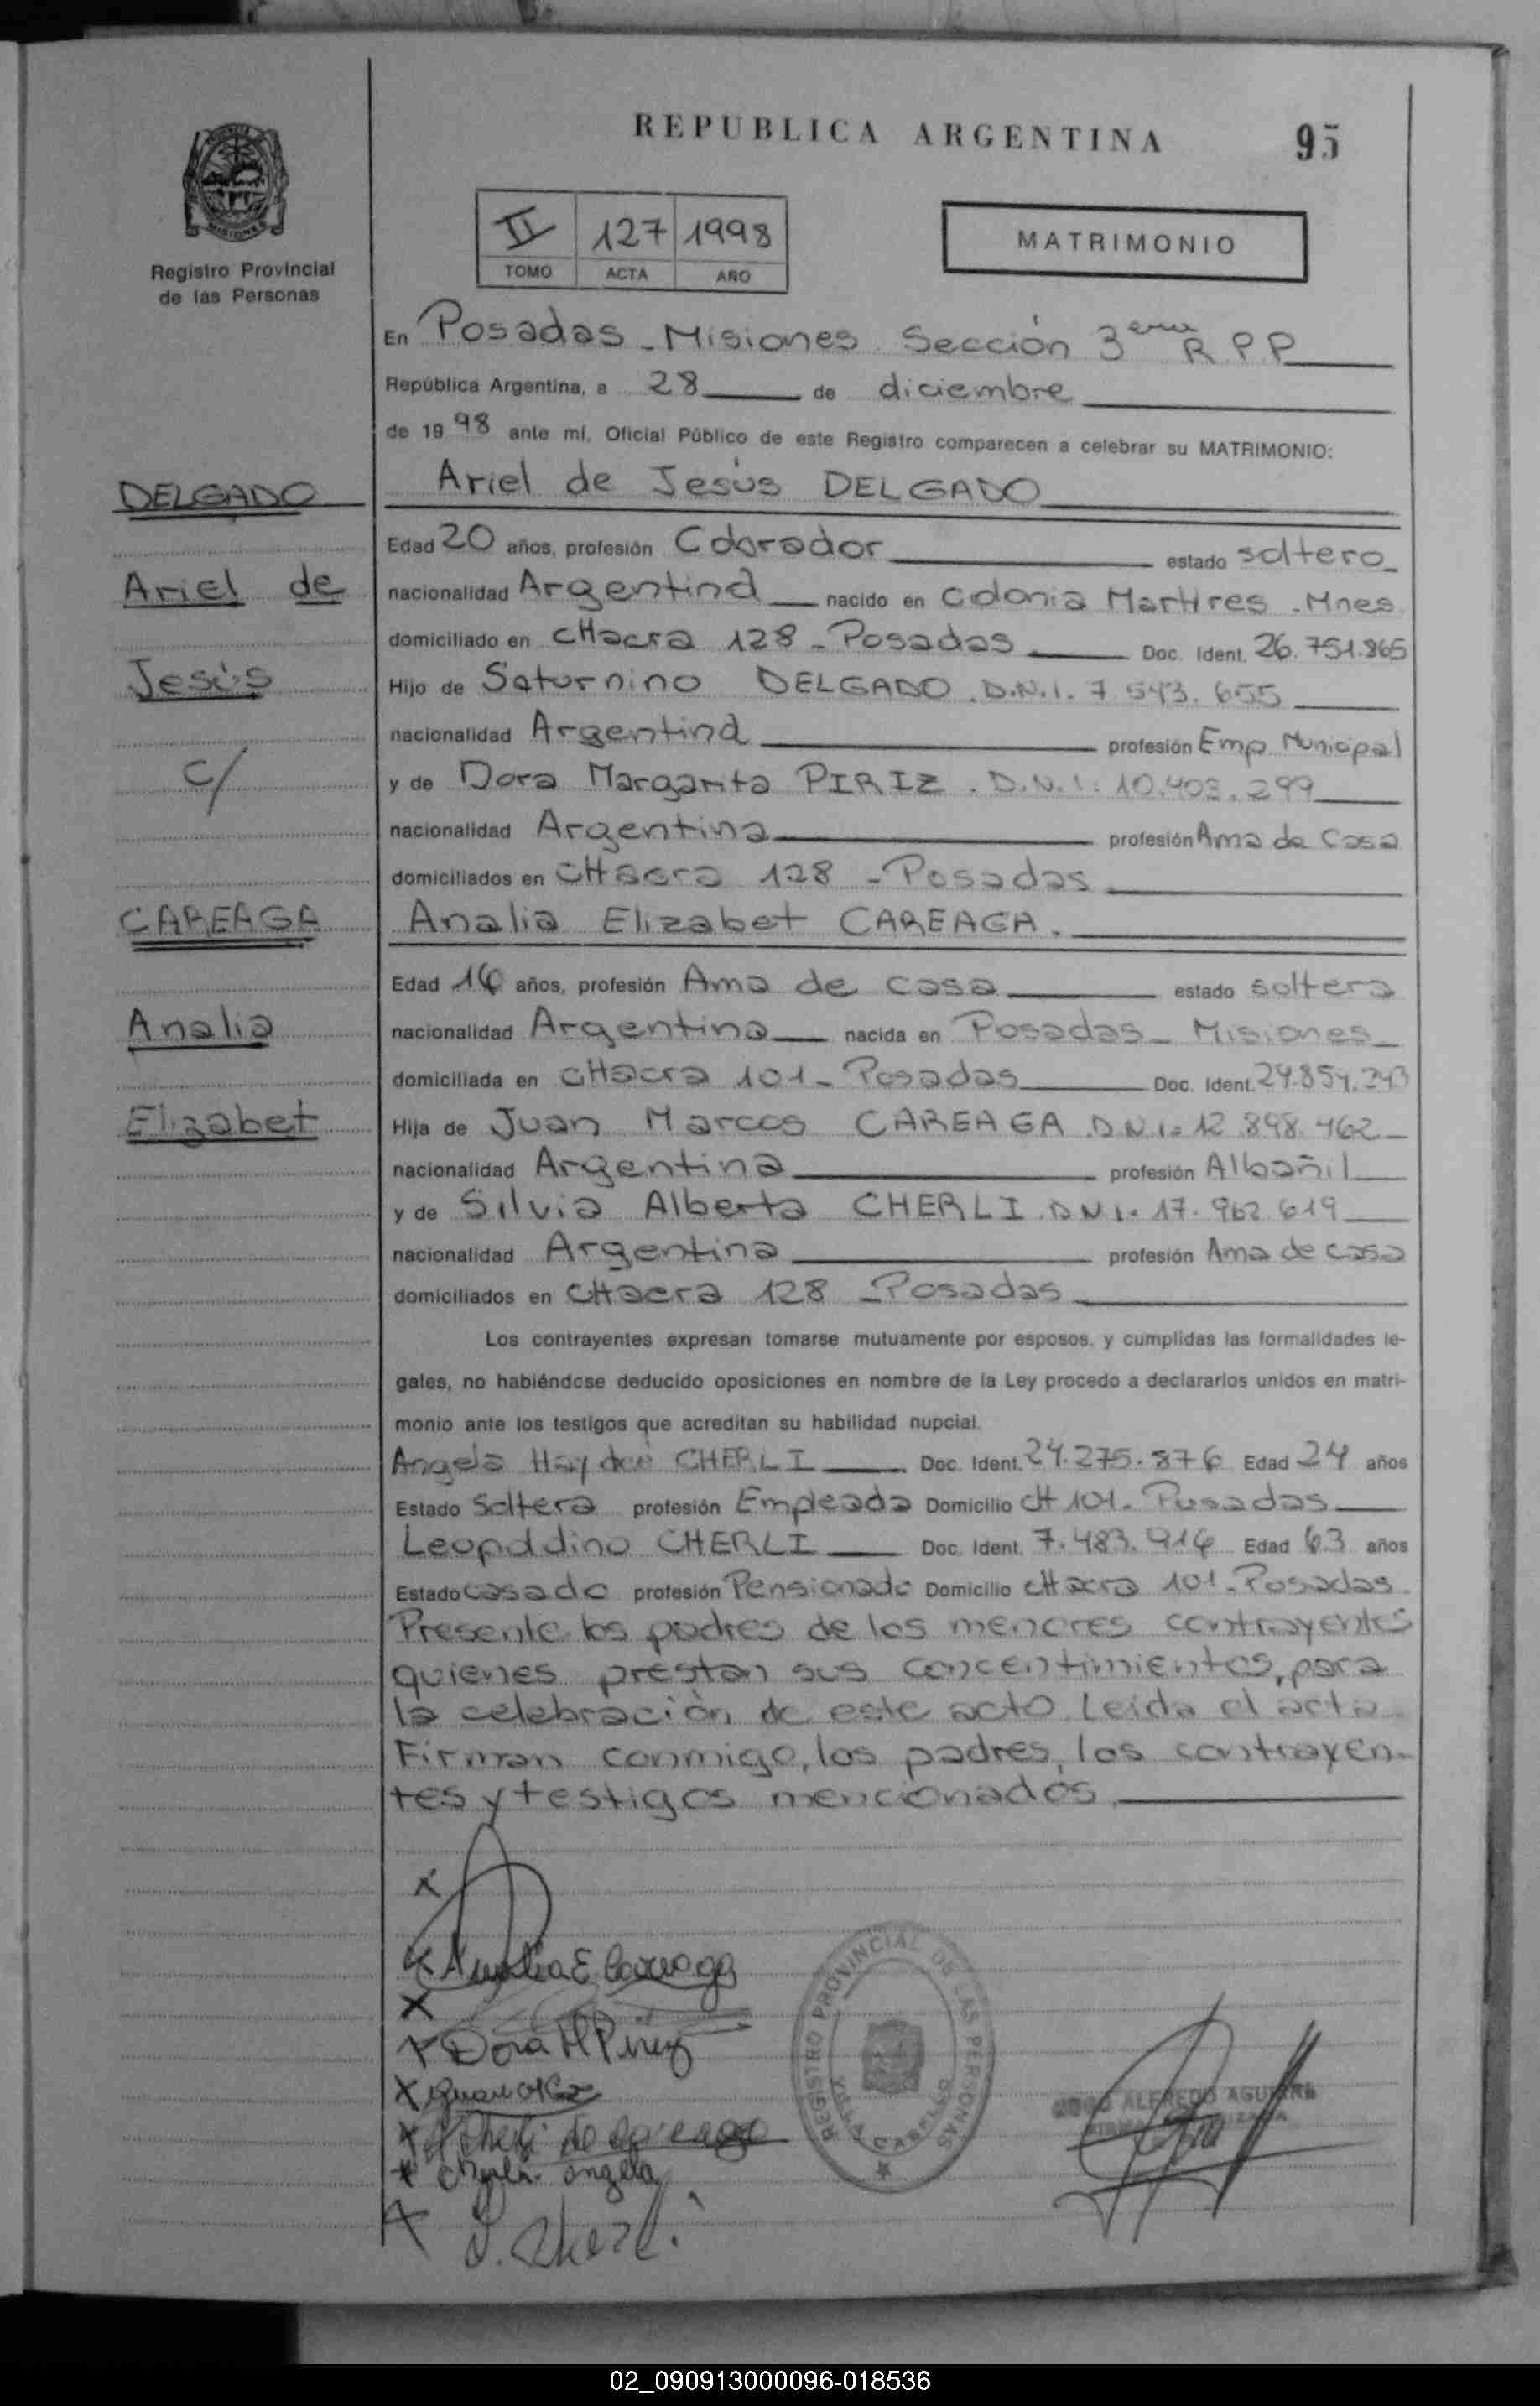 REPUBLICA ARGENTINA
95
MISIONES
Registro Provincial
de las Personas
II 127 1998
TOMO ACTA AÑO
MATRIMONIO
En Posadas - Misiones Sección 3era R.P.P
República Argentina, a 28 de diciembre
de 1998 ante mí, Oficial Público de este Registro comparecen a celebrar su MATRIMONIO:
DELGADO
Ariel de Jesús DELGADO
Edad 20 años, profesión Cobrador estado soltero
Ariel de
nacionalidad Argentina nacido en Colonia Martires - Mnes
domiciliado en CHacra 128 - Posadas Doc. Ident. 26.751.865
Jesús
Hijo de Saturnino DELGADO. D.N.I. 7.543.655
nacionalidad Argentina profesión Emp. Municipal
C/
y de Dora Margarita PIRIZ. D.N.I. 10.403.299
nacionalidad Argentina profesión Ama de Casa
domiciliados en CHacra 128 - Posadas
CAREAGA
Analia Elizabet CAREAGA.
Edad 16 años, profesión Ama de casa estado soltera
Analia
nacionalidad Argentina nacida en Posadas - Misiones
domiciliada en CHacra 101 - Posadas Doc. Ident. 29.854.243
Elizabet
Hija de Juan Marcos CAREAGA D.N.I. 12.898.462
nacionalidad Argentina profesión Albañil
y de Silvia Alberta CHERLI. D.N.I. 17.962.619
nacionalidad Argentina profesión Ama de casa
domiciliados en CHacra 128 - Posadas
Los contrayentes expresan tomarse mutuamente por esposos, y cumplidas las formalidades le-
gales, no habiéndose deducido oposiciones en nombre de la Ley procedo a declararlos unidos en matri-
monio ante los testigos que acreditan su habilidad nupcial.
Angela Haydeé CHERLI Doc. Ident. 24.275.876 Edad 24 años
Estado Soltera profesión Empleada Domicilio CH 101 - Posadas
Leopoldino CHERLI Doc. Ident. 7.483.916 Edad 63 años
Estado casado profesión Pensionado Domicilio CHacra 101 - Posadas.
Presente los padres de los menores contrayentes
quienes prestan sus concentimientos, para
la celebración de este acto. Leida el acta
Firman conmigo, los padres, los contrayen-
tes y testigos mencionados.
x
x Analia E Careaga
x
x Dora M Piriz
x
x Cherli de Careaga
x Cherli Angela
x L. Cherli
REGISTRO PROVINCIAL DE LAS PERSONAS
ALFREDO AGUIRRE
02_090913000096-018536